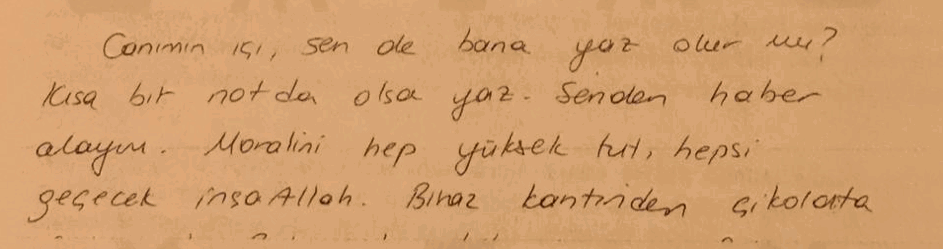 Canımın içi, sen de bana yaz olur mu?
Kısa bir not da olsa yaz. Senden haber
alayım. Moralini hep yüksek tut, hepsi
geçecek inşaAllah. Biraz kantinden çikolata